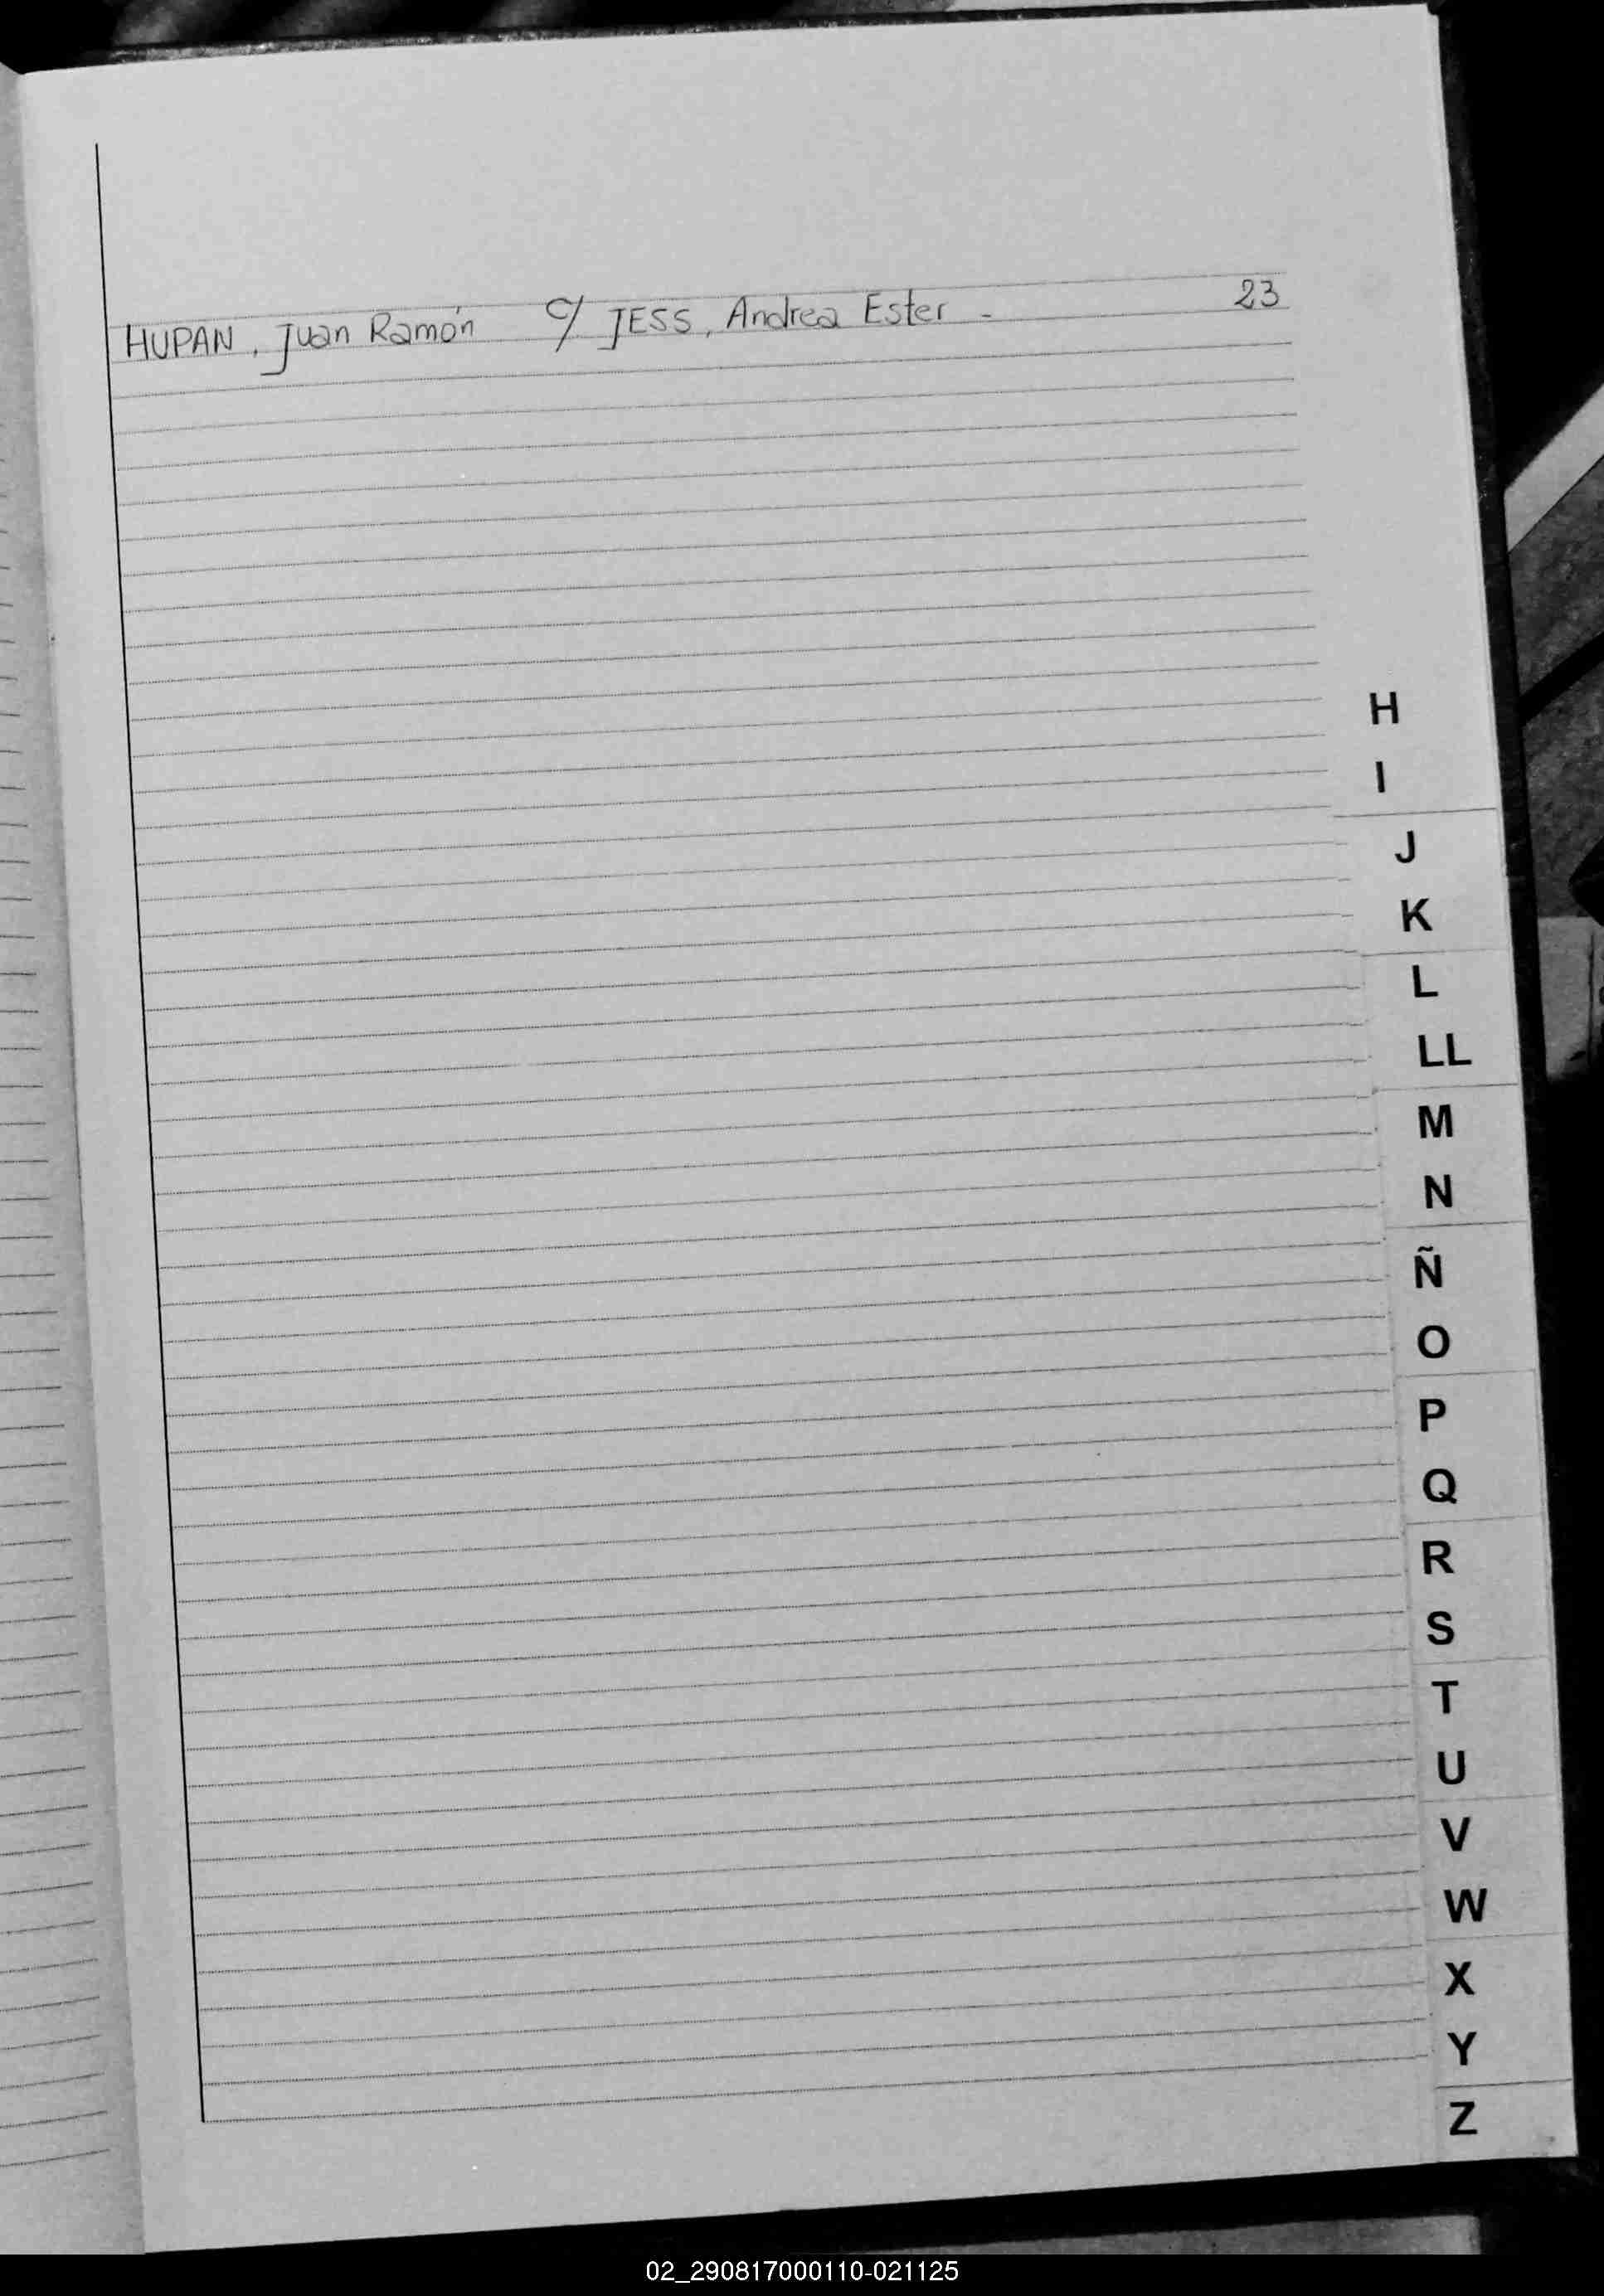 HUPAN, Juan Ramón c/ JESS, Andrea Ester - 23
H
I
J
K
L
LL
M
N
Ñ
O
P
Q
R
S
T
U
V
W
X
Y
Z
02_290817000110-021125